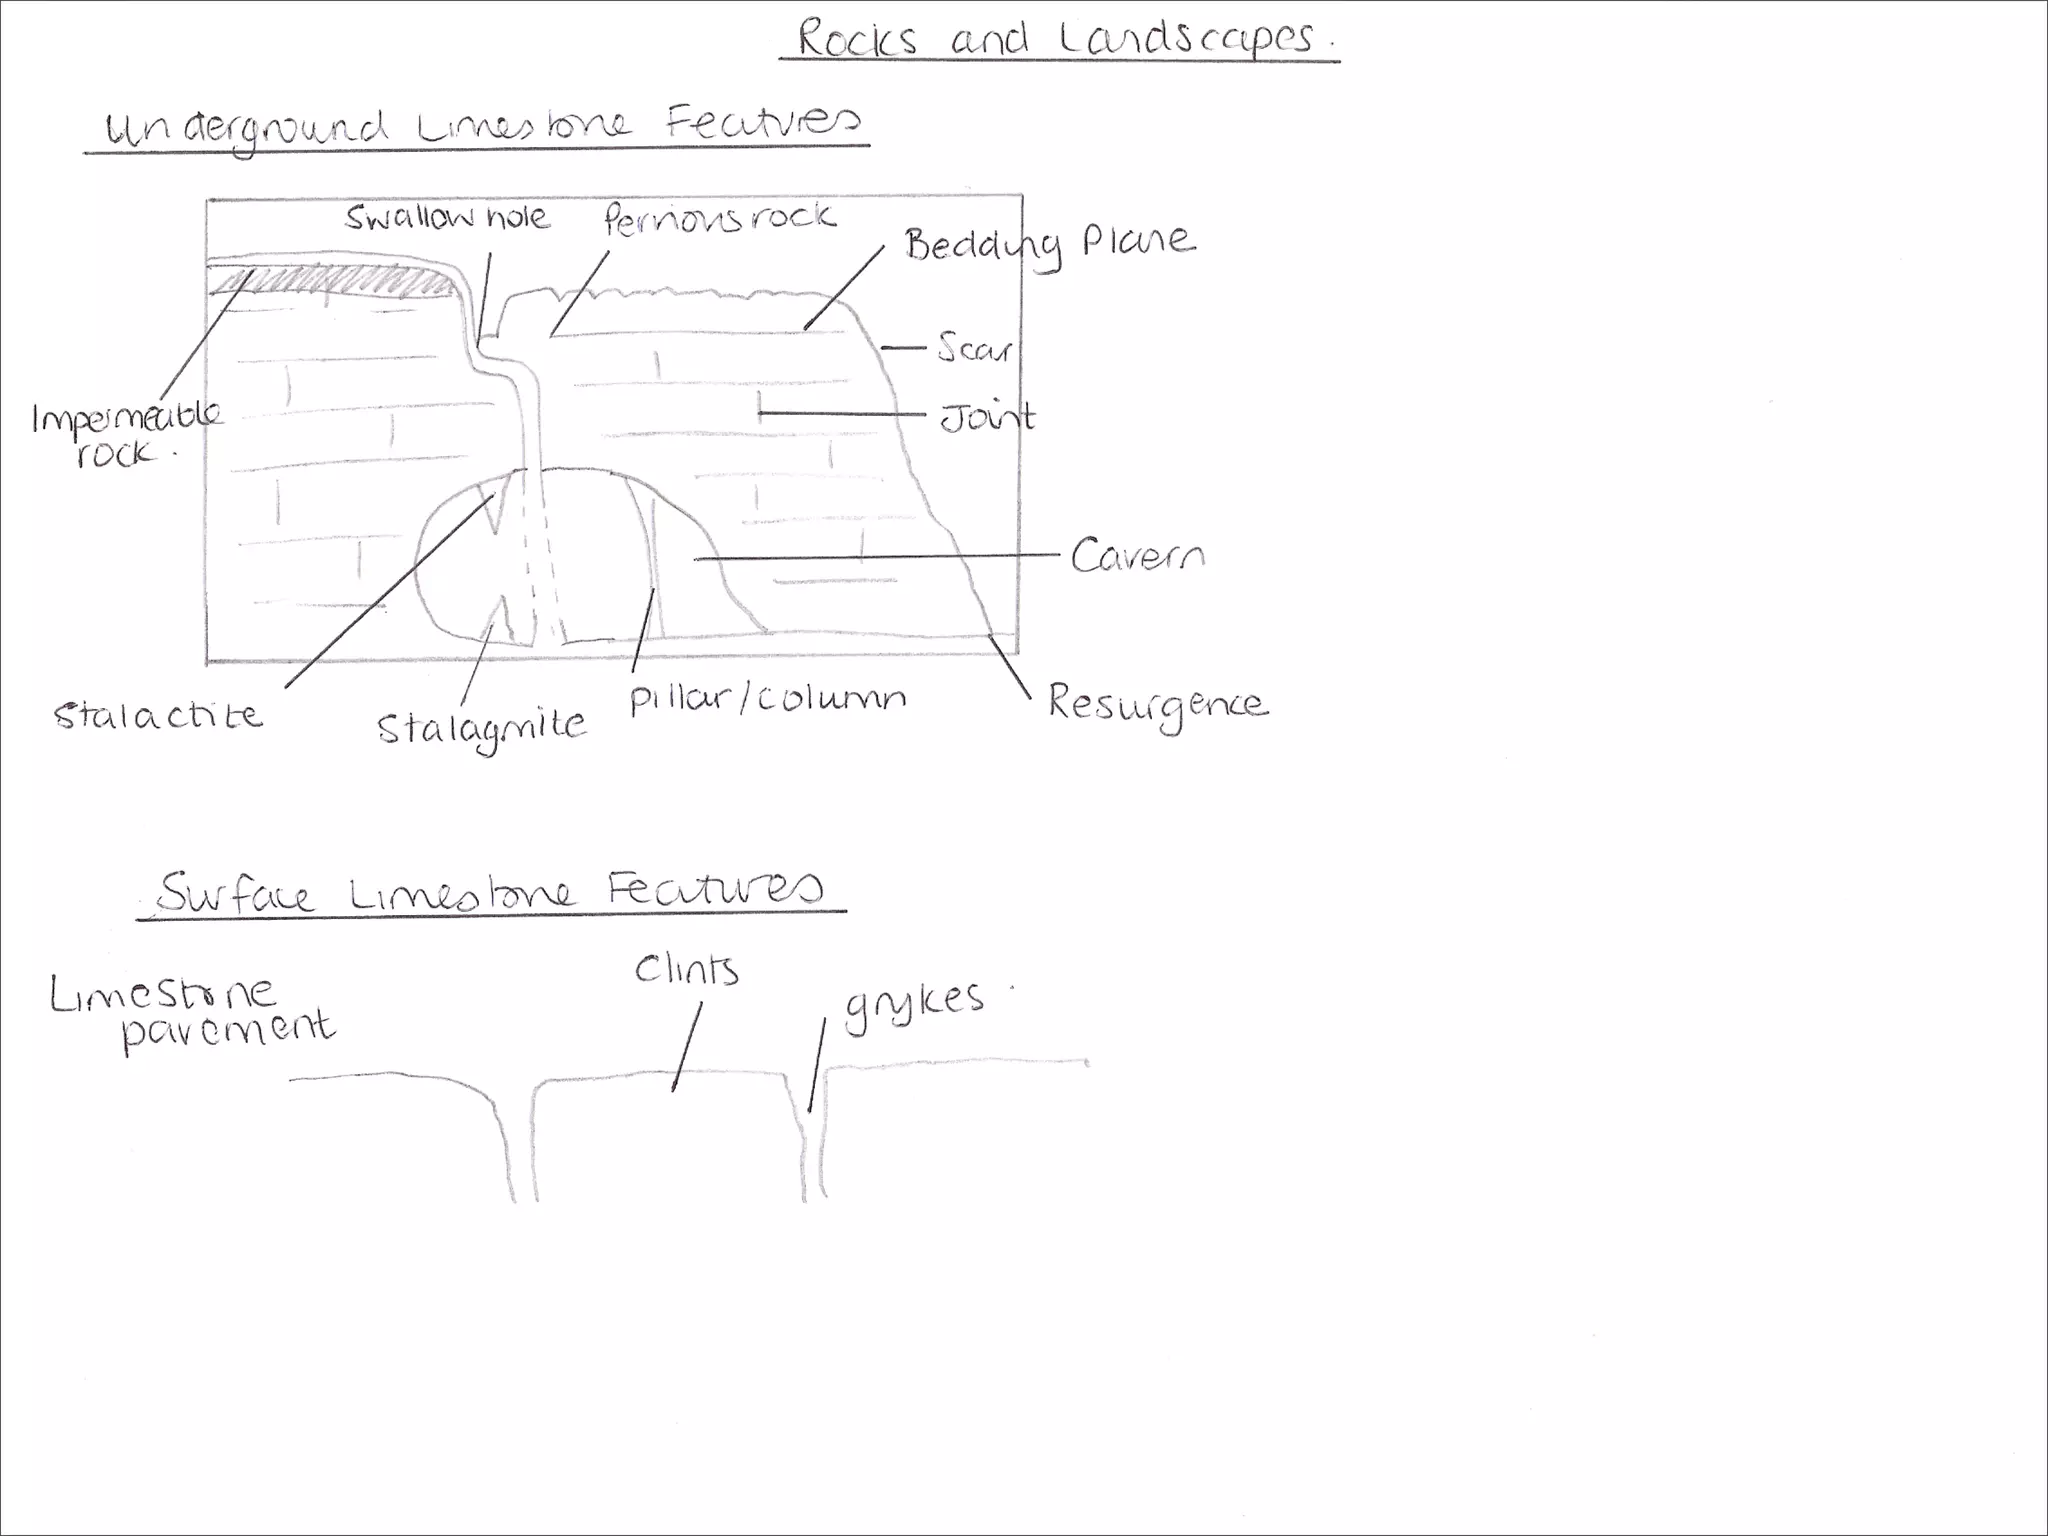 Rocks and Landscapes.
Underground Limestone Features
Swallow hole
Pervious rock
Bedding Plane
Scar
Joint
Impermeable
rock.
Cavern
Stalactite
Stalagmite
Pillar/column
Resurgence
Surface Limestone Features
Limestone
pavement
Clints
grykes